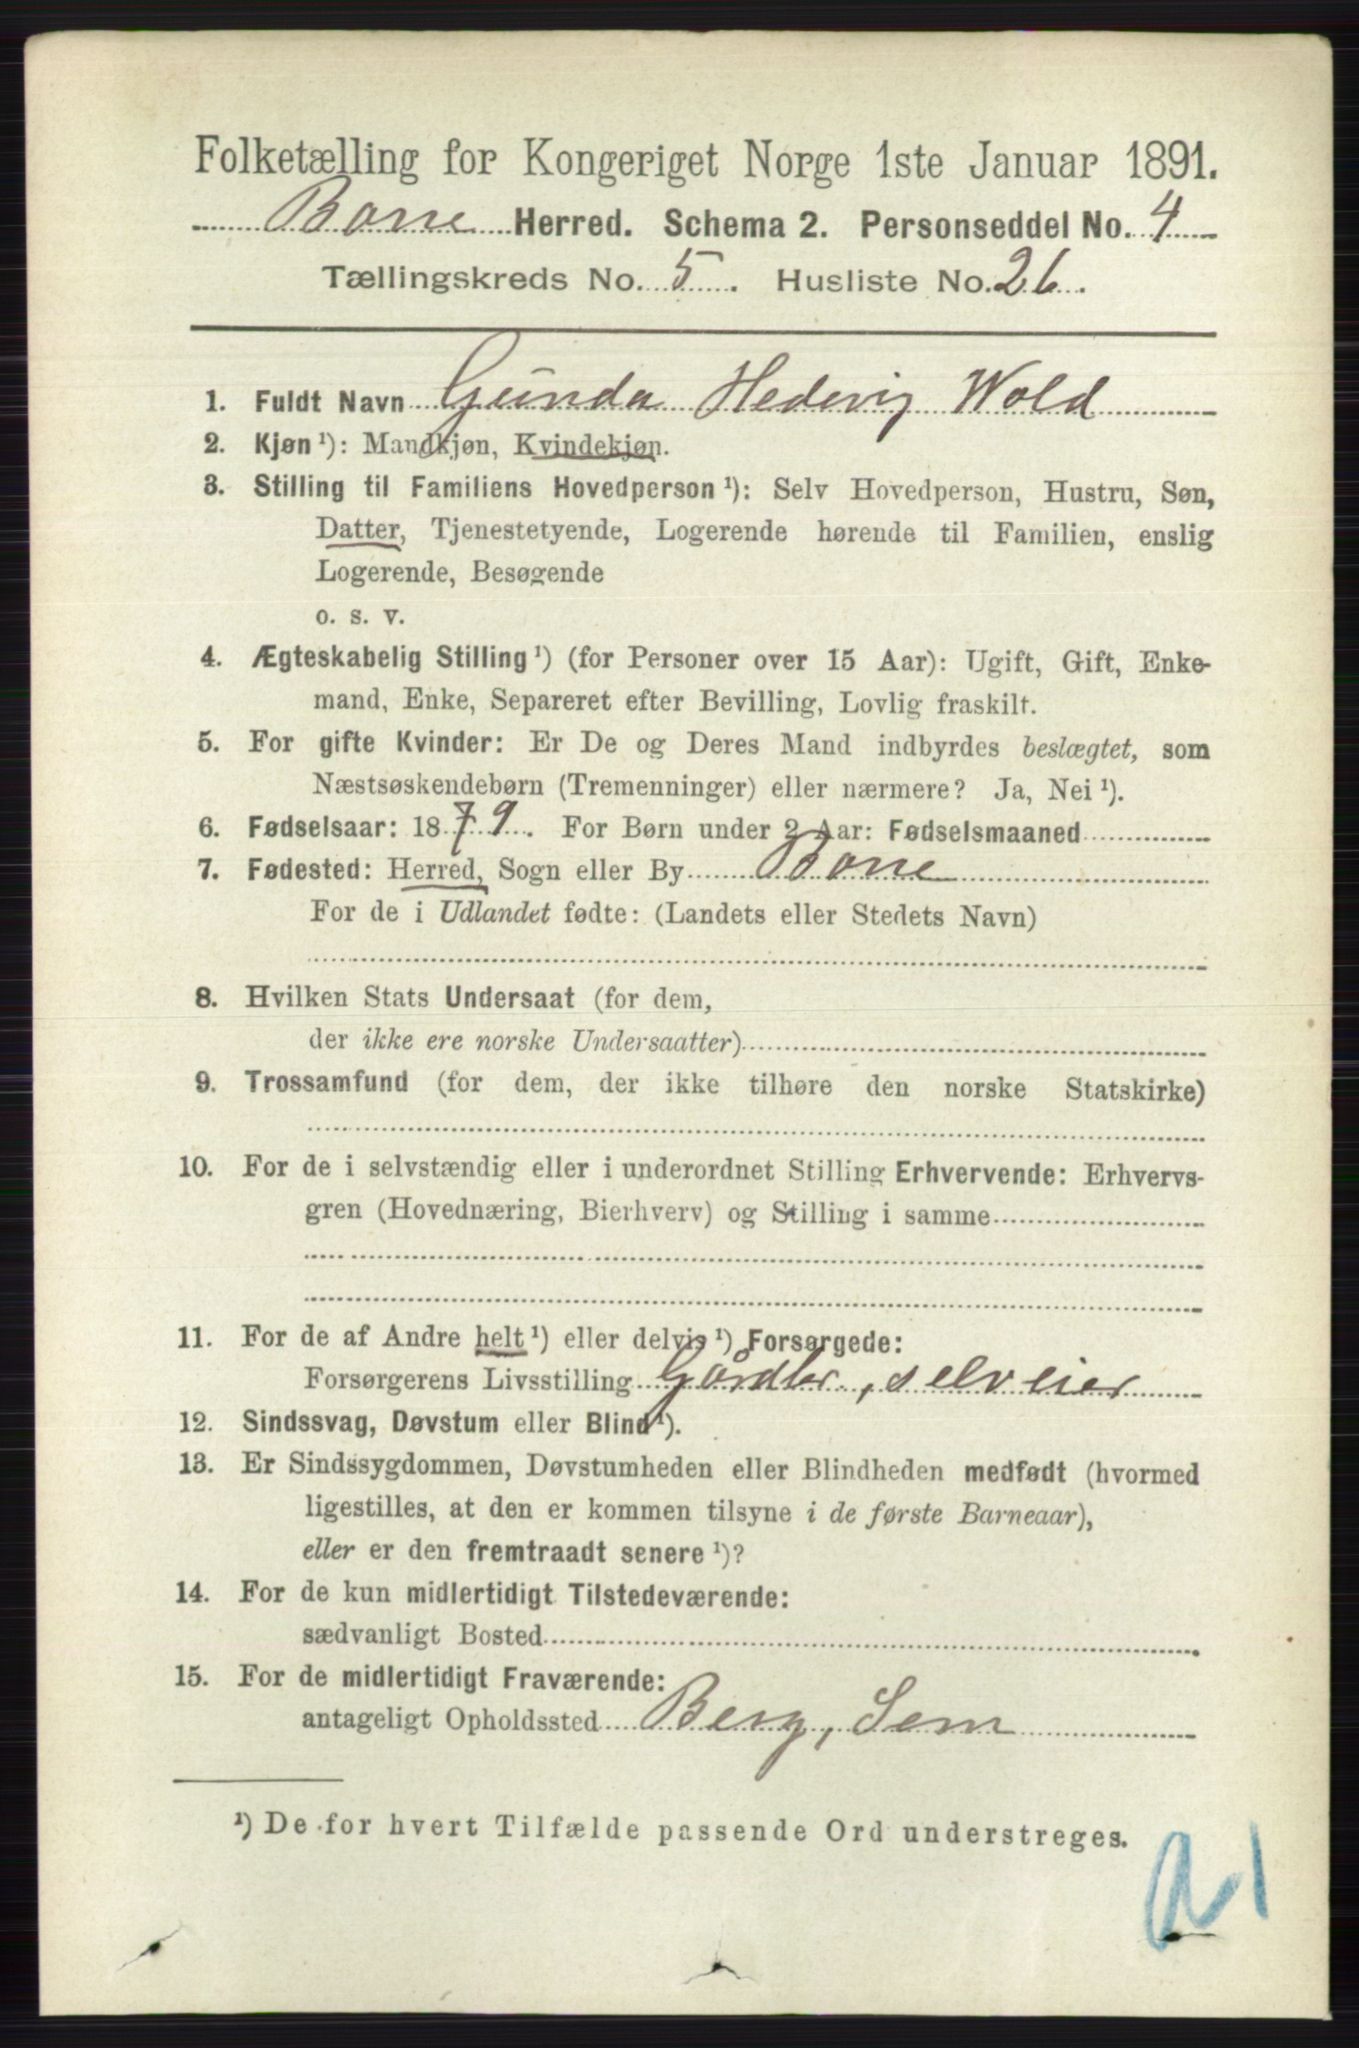 Folketælling for Kongeriget Norge 1ste Januar 1891.
Borre Herred. Schema 2. Personseddel No. 4
Tællingskreds No. 5. Husliste No. 26.
1. Fuldt Navn Gunda Hedevig Wold
2. Kjøn¹): Mandkjøn, Kvindekjøn.
3. Stilling til Familiens Hovedperson¹): Selv Hovedperson, Hustru, Søn,
Datter, Tjenestetyende, Logerende hørende til Familien, enslig
Logerende, Besøgende
o. s. v.
4. Ægteskabelig Stilling¹) (for Personer over 15 Aar): Ugift, Gift, Enke-
mand, Enke, Separeret efter Bevilling, Lovlig fraskilt.
5. For gifte Kvinder: Er De og Deres Mand indbyrdes beslægtet, som
Næstsøskendebørn (Tremenninger) eller nærmere? Ja, Nei¹).
6. Fødselsaar: 1879. For Børn under 2 Aar: Fødselsmaaned
7. Fødested: Herred, Sogn eller By Borre
For de i Udlandet fødte: (Landets eller Stedets Navn)
8. Hvilken Stats Undersaat (for dem,
der ikke ere norske Undersaatter)
9. Trossamfund (for dem, der ikke tilhøre den norske Statskirke)
10. For de i selvstændig eller i underordnet Stilling Erhvervende: Erhvervs-
gren (Hovednæring, Bierhverv) og Stilling i samme
11. For de af Andre helt¹) eller delvis¹) Forsørgede:
Forsørgerens Livsstilling Gårdbr., selveier
12. Sindssvag, Døvstum eller Blind¹).
13. Er Sindssygdommen, Døvstumheden eller Blindheden medfødt (hvormed
ligestilles, at den er kommen tilsyne i de første Barneaar),
eller er den fremtraadt senere¹)?
14. For de kun midlertidigt Tilstedeværende:
sædvanligt Bosted
15. For de midlertidigt Fraværende:
antageligt Opholdssted Berg, Sem
¹) De for hvert Tilfælde passende Ord understreges.